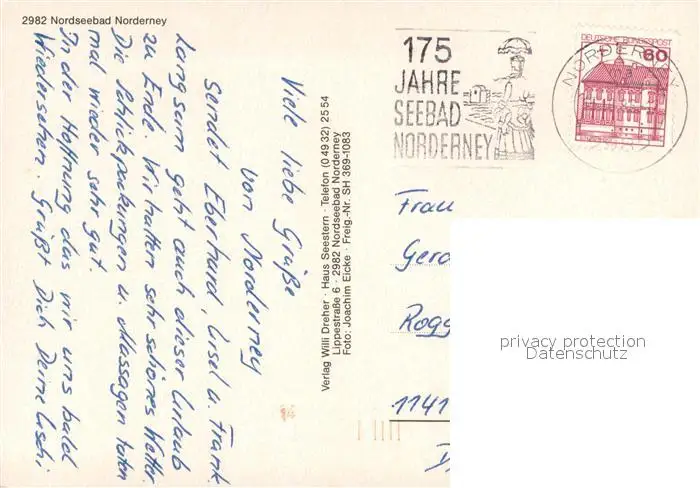 2982 Nordseebad Norderney
Viele liebe Grüße
von Norderney
sendet Eberhard, Ursel u. Frank.
Langsam geht auch dieser Urlaub
zu Ende. Wir hatten sehr schönes Wetter.
Die Schlickpackungen u. Massagen taten
mal wieder sehr gut.
In der Hoffnung das wir uns bald
Wiedersehen. Grüßt Dich Deine
Verlag Willi Dreher · Haus Seestern · Telefon (0 49 32) 25 54
Lippestraße 6 · 2982 Nordseebad Norderney
Foto: Joachim Eicke · Freig.-Nr. SH 369-1083
175
JAHRE
SEEBAD
NORDERNEY
DEUTSCHE BUNDESPOST
60
NORDERNEY
Frau
Gero
Rogg
1141
privacy protection
Datenschutz